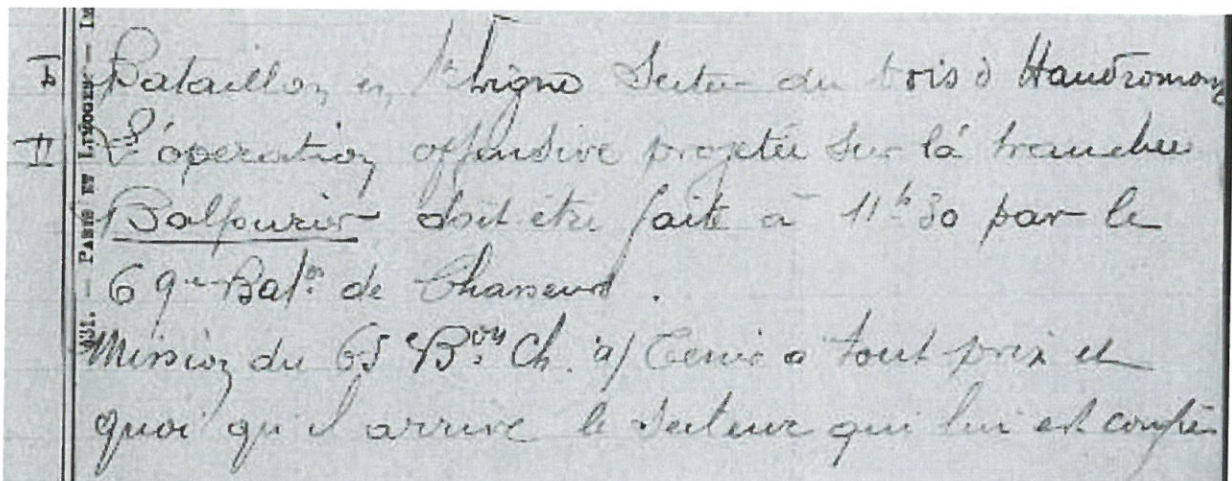 I Bataillon en 1re Ligne Secteur du bois d'Haudromont
II L'opération offensive projetée sur la tranchée
Balfourier doit être faite à 11h30 par le
69e Baton de Chasseurs.
Mission du 65e Bon Ch. a/ Tenir à tout prix et
quoi qu'il arrive le secteur qui lui est confié
— PARIS ET LIMOGES —